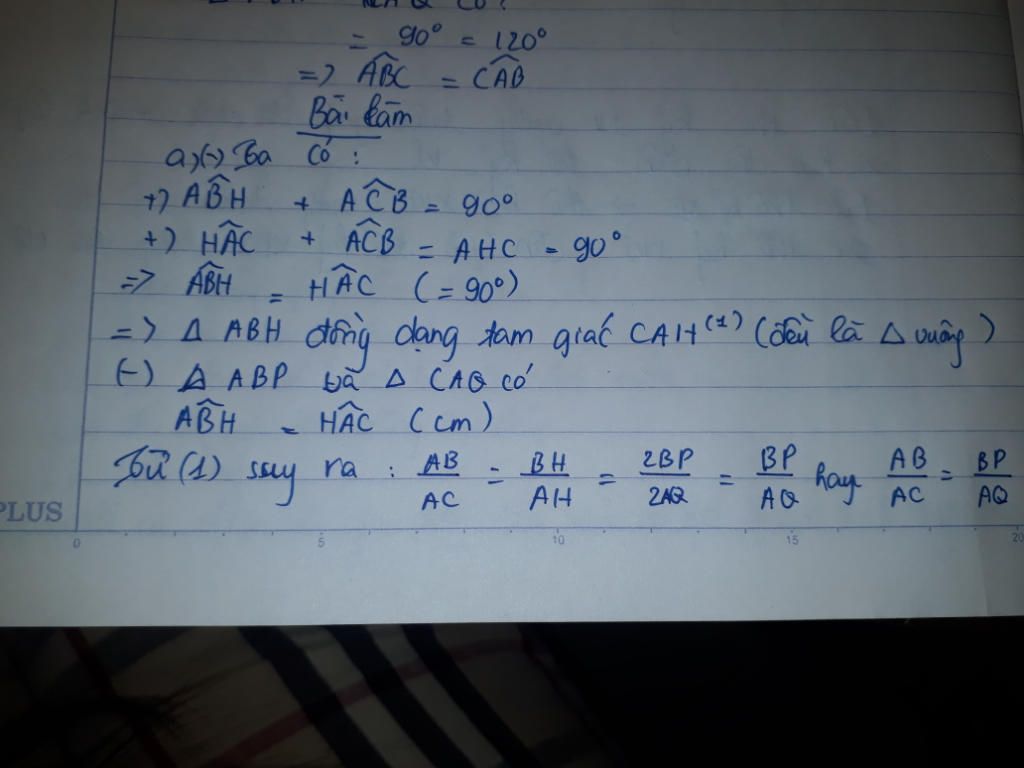 Có:
= 90° = 120°
=> ABC = CAB
Bài làm
a,(-) Ta Có :
+) ABH + ACB = 90°
+) HAC + ACB = AHC = 90°
=> ABH = HAC (= 90°)
=> Δ ABH đồng dạng tam giác CAH (1) (đều là Δ vuông)
(-) Δ ABP và Δ CAQ có
ABH = HAC (cm)
Từ (1) suy ra : AB/AC = BH/AH = 2BP/2AQ = BP/AQ hay AB/AC = BP/AQ
PLUS
0 5 10 15 20